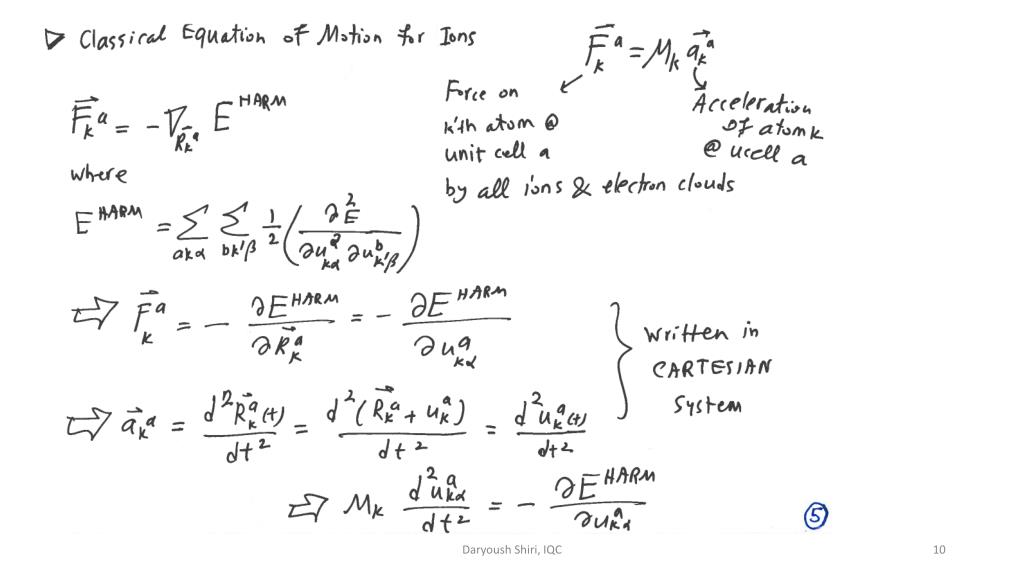 ▷ Classical Equation of Motion for Ions
F⃗_k^a = M_k a⃗_k^a
Force on
k'th atom @
unit cell a
by all ions & electron clouds
Acceleration
of atom k
@ ucell a
F⃗_k^a = -∇_{R⃗_k^a} E^HARM
where
E^HARM = Σ_{akα} Σ_{bk'β} 1/2 (∂²E / ∂u_{kα}^a ∂u_{k'β}^b)
⇨ F⃗_k^a = - ∂E^HARM / ∂R⃗_k^a = - ∂E^HARM / ∂u_{kα}^a
⇨ a⃗_k^a = d²R⃗_k^a(t) / dt² = d²(R⃗_k^a + u_k^a) / dt² = d²u_k^a(t) / dt²
} written in
CARTESIAN
System
⇨ M_k d²u_{kα}^a / dt² = - ∂E^HARM / ∂u_{kα}^a
⑤
Daryoush Shiri, IQC
10